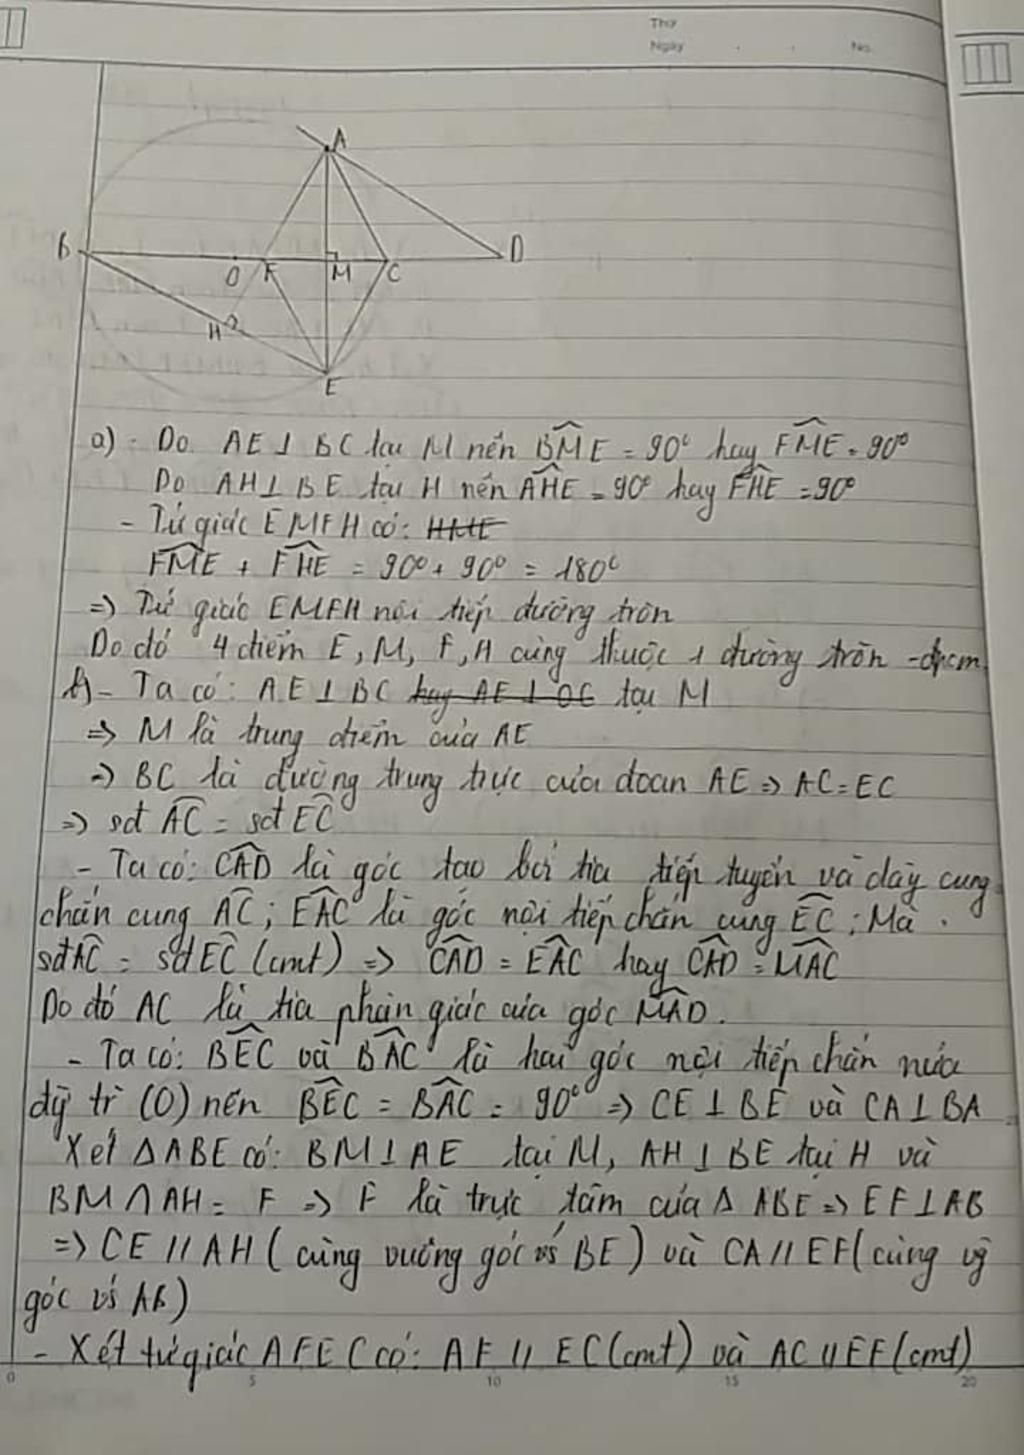 Thứ
Ngày . . No.
A
B
D
O F M C
H
E
a) - Do AE ⊥ BC tại M nên BME = 90° hay FME = 90°
Do AH ⊥ BE tại H nên AHE = 90° hay FHE = 90°
- Tứ giác EMFH có: HME
FME + FHE = 90° + 90° = 180°
=> Tứ giác EMFH nội tiếp đường tròn
Do đó 4 điểm E, M, F, H cùng thuộc 1 đường tròn - đpcm
b) - Ta có: AE ⊥ BC hay AE ⊥ OC tại M
=> M là trung điểm của AE
=> BC là đường trung trực của đoạn AE => AC = EC
=> sđ AC = sđ EC
- Ta có: CAD là góc tạo bởi tia tiếp tuyến và dây cung
chắn cung AC; EAC là góc nội tiếp chắn cung EC; Mà
sđ AC = sđ EC (cmt) => CAD = EAC hay CAD = MAC
Do đó AC là tia phân giác của góc MAD.
- Ta có: BEC và BAC là hai góc nội tiếp chắn nửa
đg tr (O) nên BEC = BAC = 90° => CE ⊥ BE và CA ⊥ BA
Xét ΔABE có: BM ⊥ AE tại M, AH ⊥ BE tại H và
BM ∩ AH = F => F là trực tâm của Δ ABE => EF ⊥ AB
=> CE // AH (cùng vuông góc vs BE) và CA // EF (cùng vg
góc vs AB)
- Xét tứ giác AFEC có: AF // EC (cmt) và AC // EF (cmt)
0 5 10 15 20